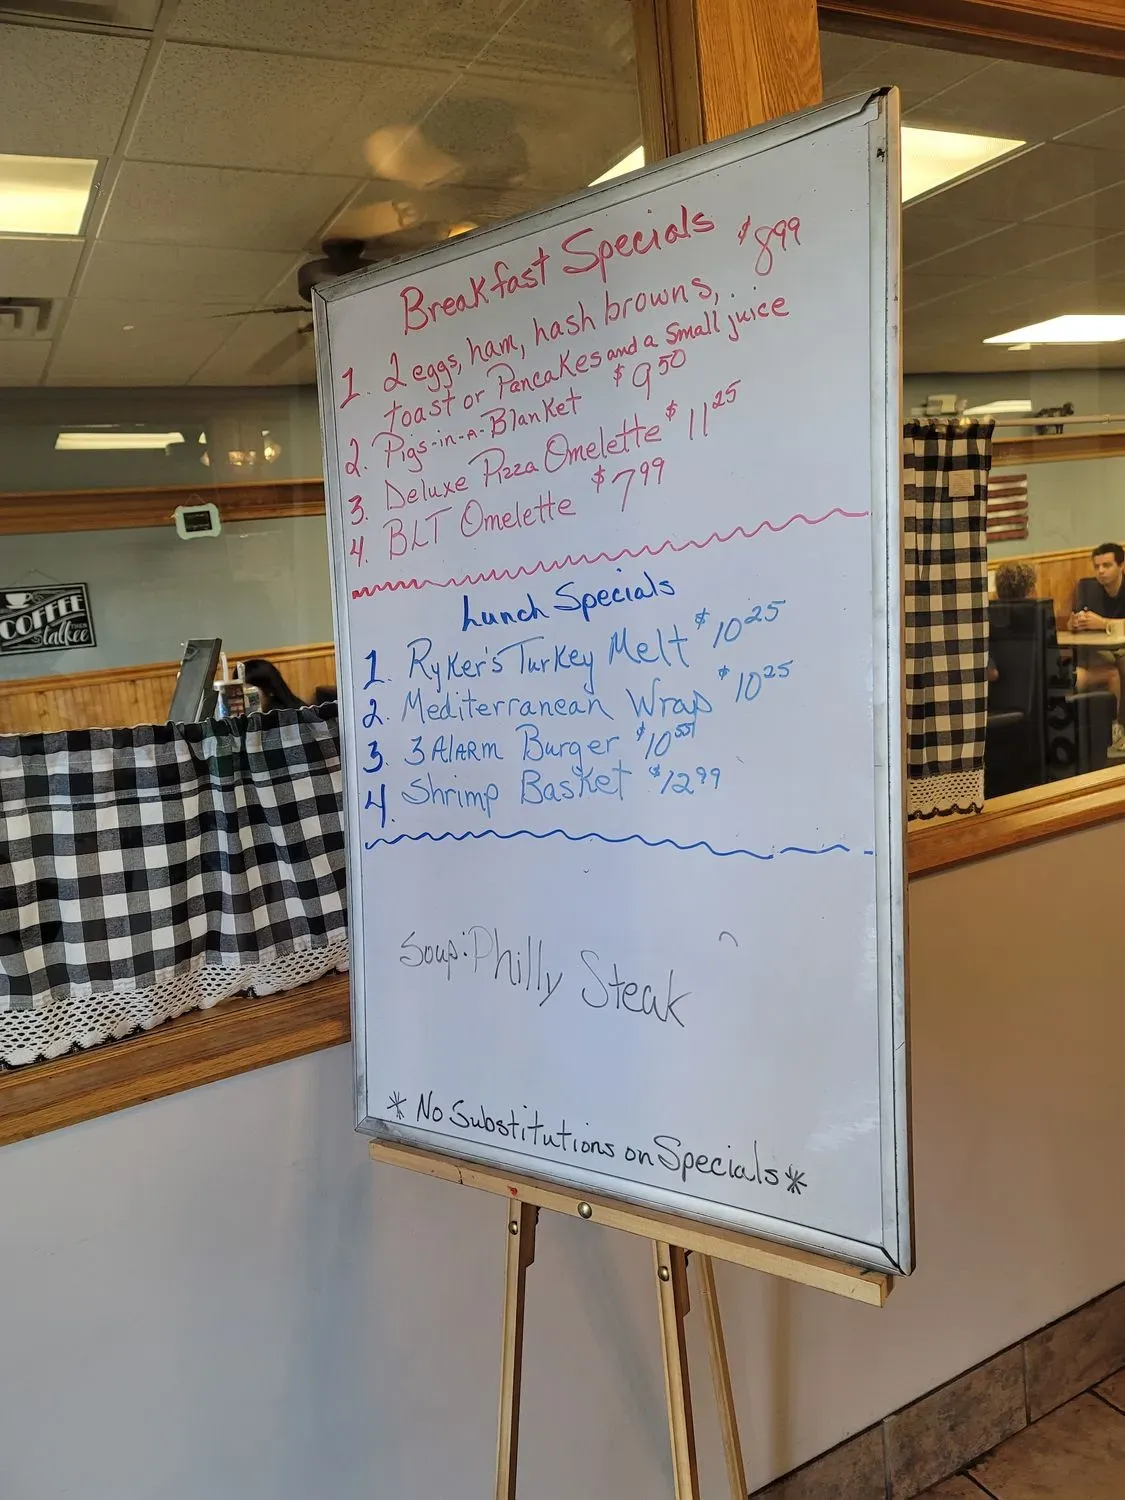 Breakfast Specials
1. 2 eggs, ham, hash browns, $8.99
toast or Pancakes and a small juice
2. Pigs-in-A-Blanket $9.50
3. Deluxe Pizza Omelette $11.25
4. BLT Omelette $7.99
Lunch Specials
1. Ryker's Turkey Melt $10.25
2. Mediterranean Wrap $10.25
3. 3 Alarm Burger $10
4. Shrimp Basket $12.99
Soup: Philly Steak
* No Substitutions on Specials *
COFFEE
THEN
talkee